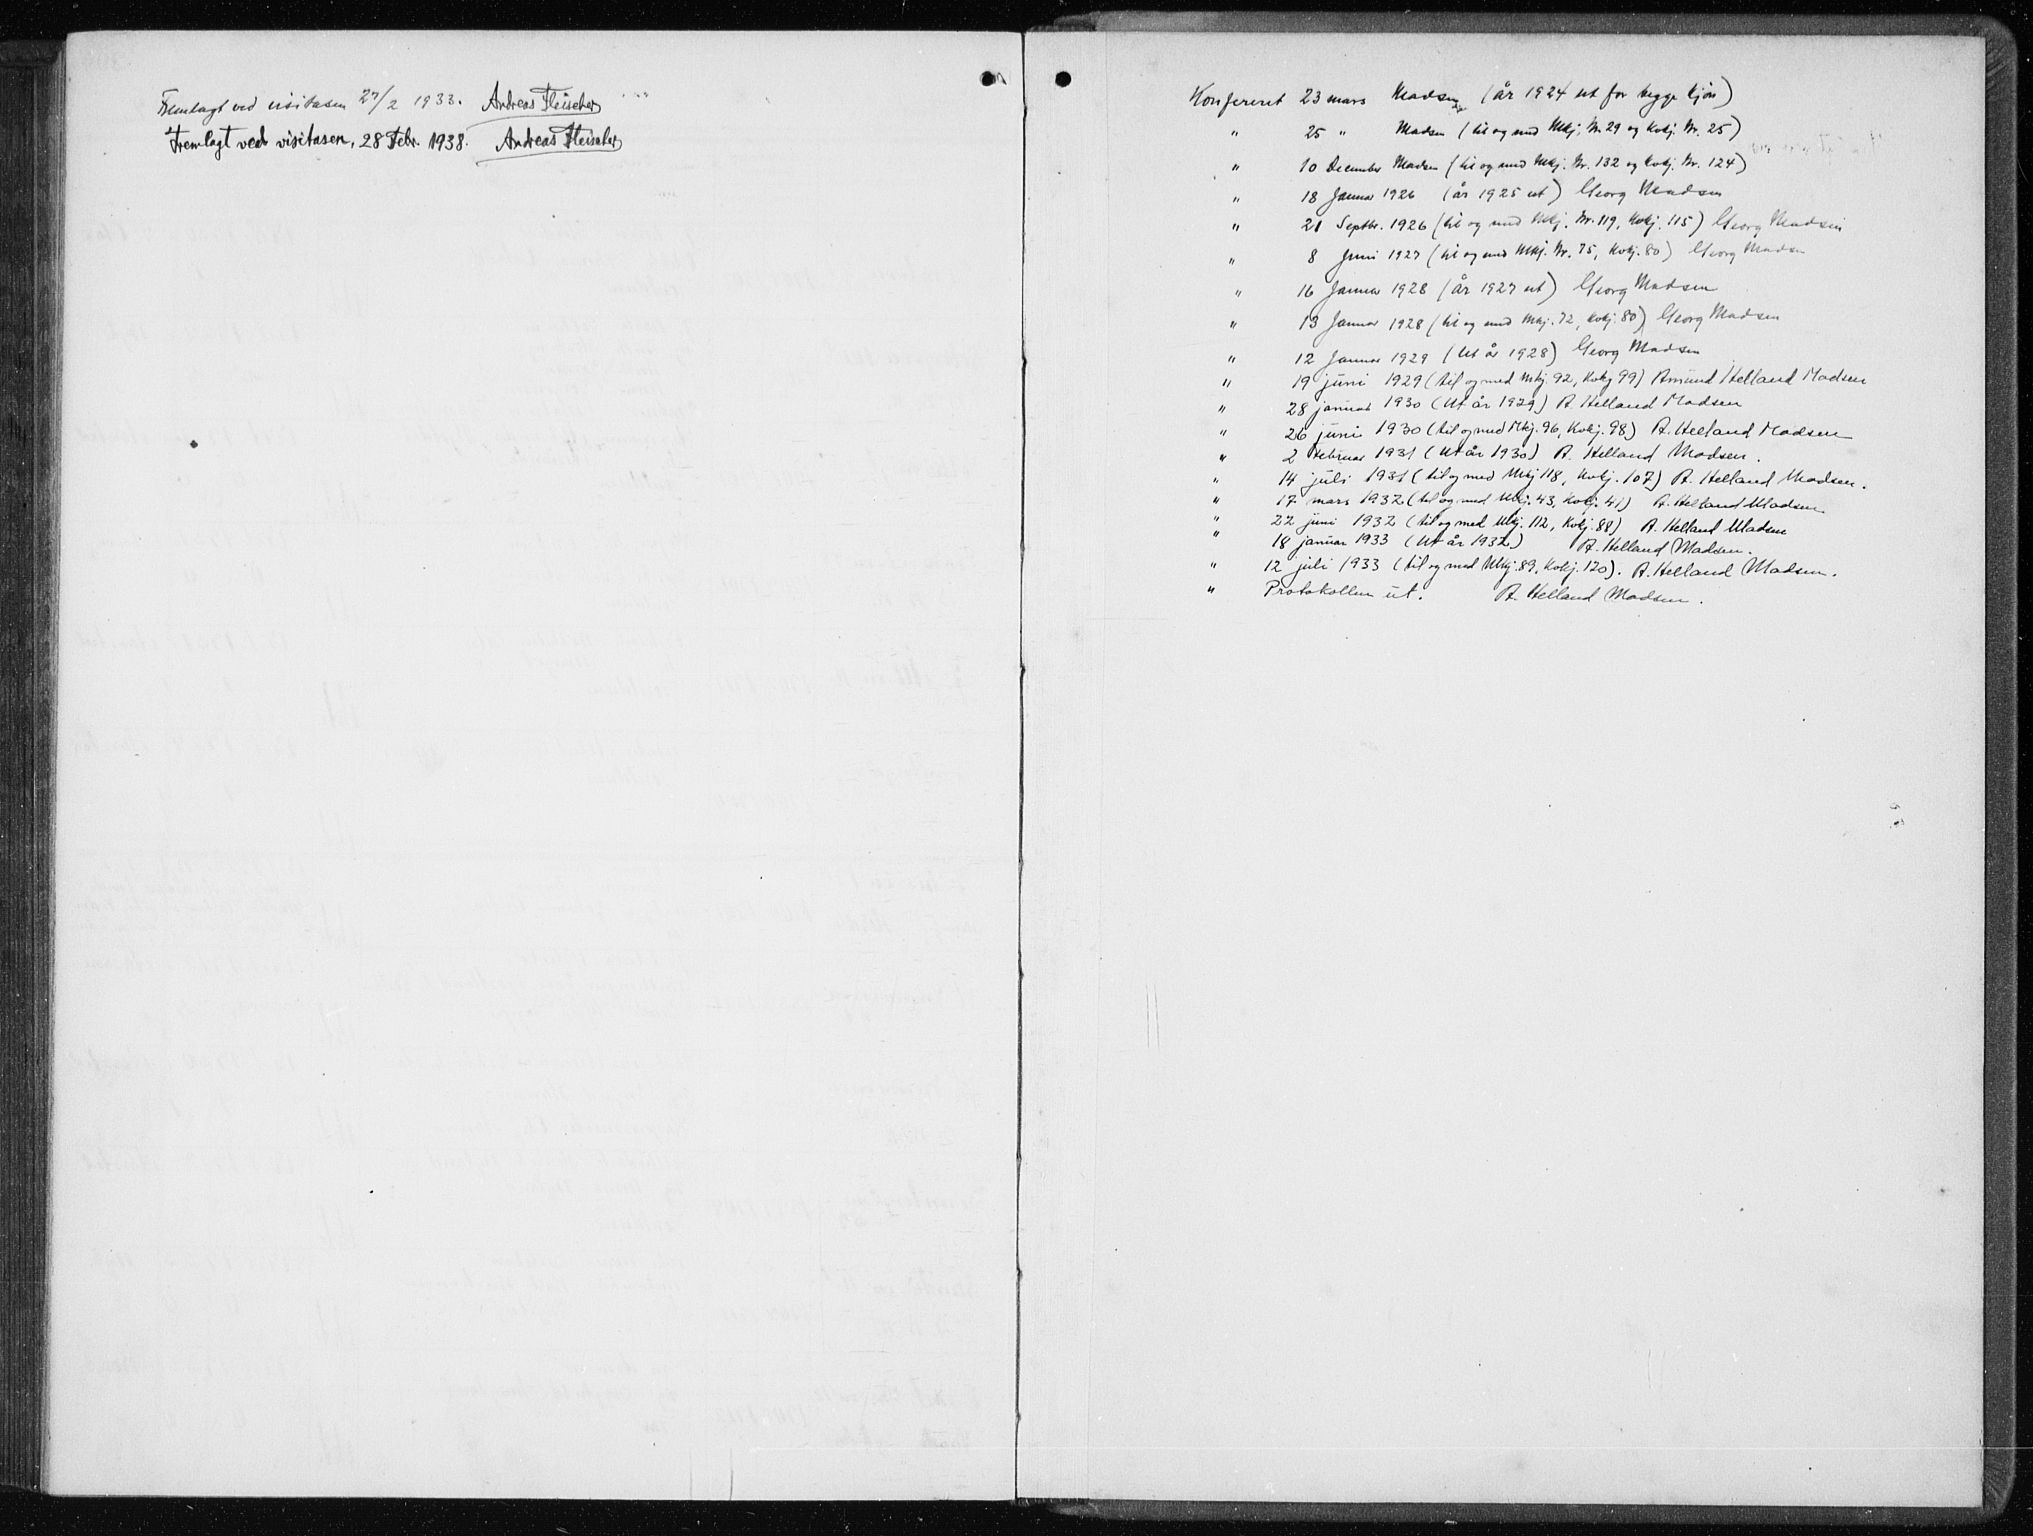 Fremlagt ved visitasen 27/2 1933. Andreas Fleischer
Fremlagt ved visitasen, 28 Febr. 1938. Andreas Fleischer
Konfereret 23 mars Madsen (år 1924 ut for begge kjön)
" 25 " Madsen (til og med Mkj. Nr. 29 og Kvkj. Nr. 25)
" 10 December Madsen (til og med Mkj. Nr. 132 og Kvkj. Nr. 124)
" 18 Januar 1926 (år 1925 ut) Georg Madsen
" 21 Septbr. 1926 (til og med Mkj. Nr. 119, Kvkj. 115) Georg Madsen
" 8 Juni 1927 (til og med Mkj. Nr. 75, Kvkj. 80) Georg Madsen
" 16 Januar 1928 (år 1927 ut) Georg Madsen
" 13 Januar 1928 (til og med Mkj. 72, Kvkj. 80) Georg Madsen
" 12 Januar 1929 (Ut år 1928) Georg Madsen
" 19 juni 1929 (til og med Mkj. 92, Kvkj 99) Amund Helland Madsen
" 28 januar 1930 (Ut år 1929) A. Helland Madsen
" 26 juni 1930 (til og med Mkj. 96, Kvkj. 98) A. Helland Madsen
" 2 Februar 1931 (Ut år 1930) A. Helland Madsen.
" 14 juli 1931 (til og med Mkj 118, Kvkj. 107) A. Helland Madsen.
" 17 mars 1932 (til og med Mkj. 43, Kvkj. 41) A. Helland Madsen
" 22 juni 1932 (til og med Mkj. 112, Kvkj. 88) A. Helland Madsen
" 18 januar 1933 (Ut år 1932) A. Helland Madsen.
" 12 juli 1933 (til og med Mkj. 89, Kvkj. 120). A. Helland Madsen.
" Protokollen ut. A. Helland Madsen.